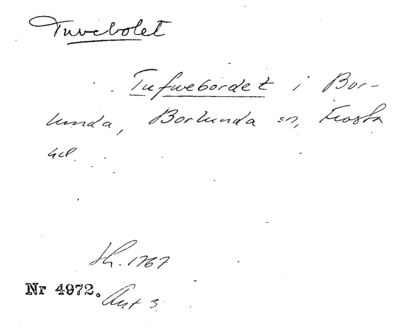 Tuvebolet
Tufwebordet i Bor-
lunda, Borlunda sn, Frosta
hd.
Lh. 1767
Nr 4972.
Akt 3